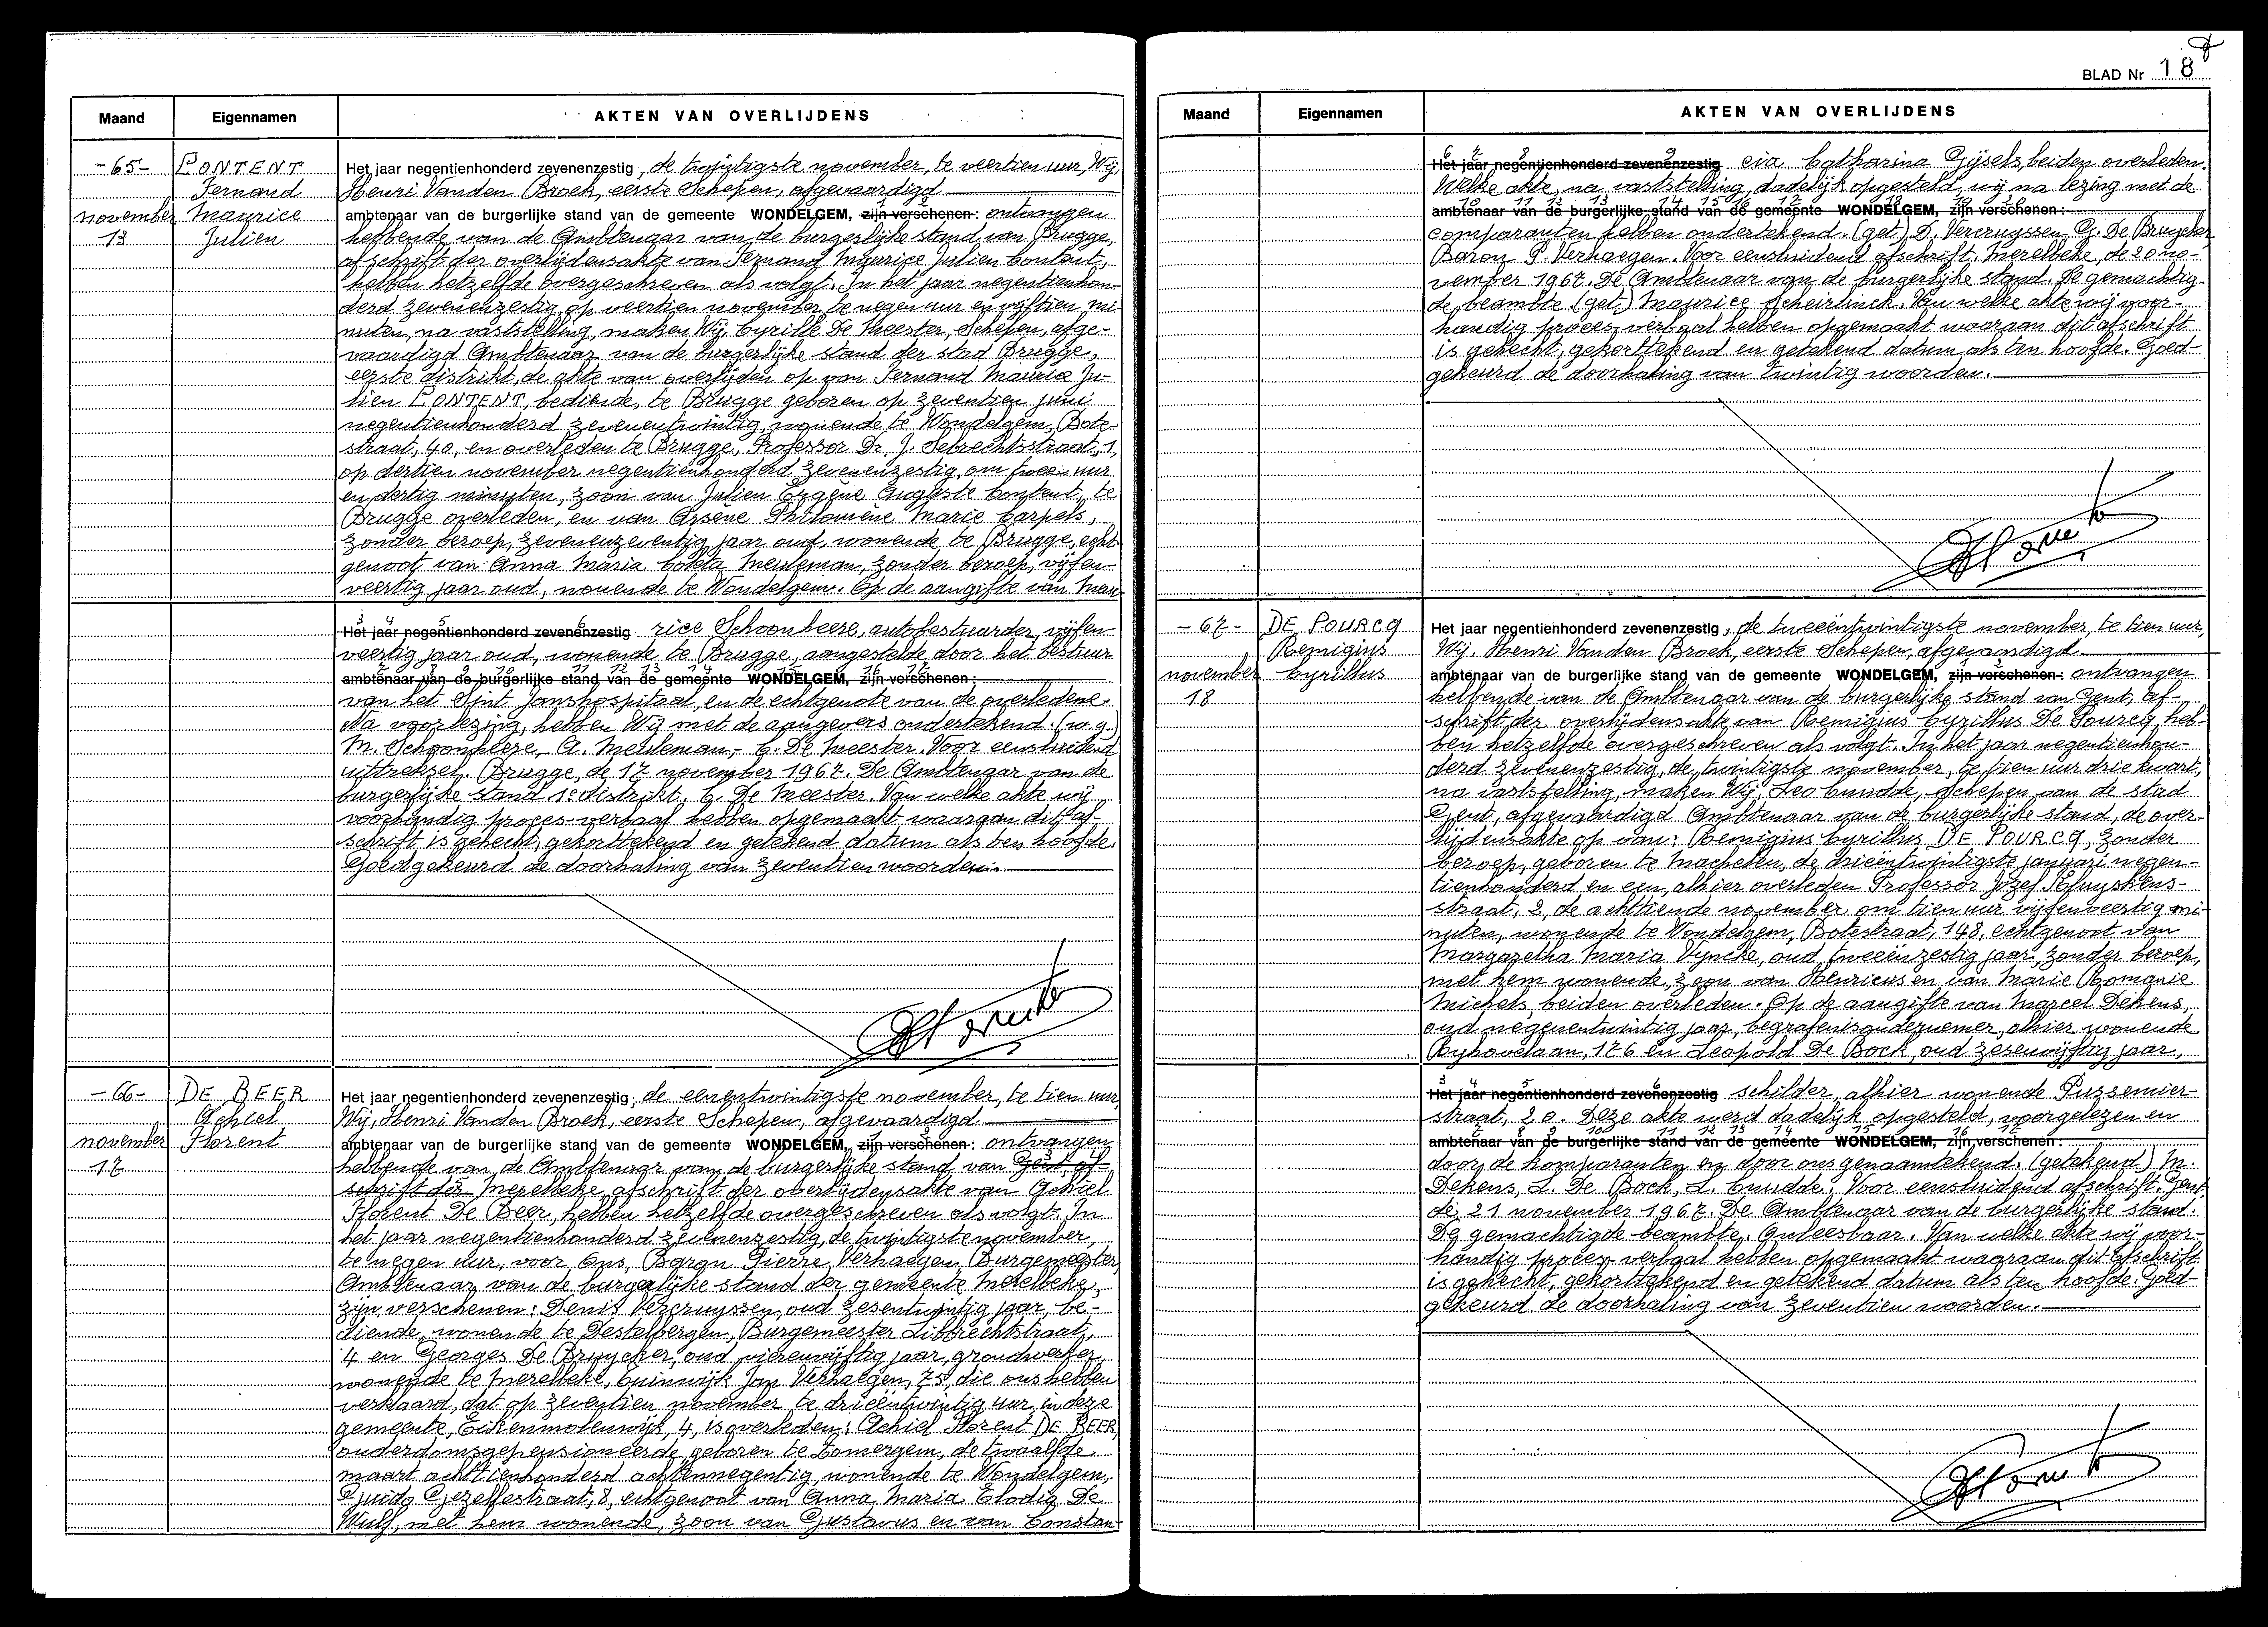 Maand Eigennamen AKTEN VAN OVERLIJDENS
-65- CONTENT
Fernand
november Maurice
13 Julien
Het jaar negentienhonderd zevenenzestig, de twintigste november, te veertien uur, Wij,
Henri Vanden Broek, eerste Schepen, afgevaardigd
ambtenaar van de burgerlijke stand van de gemeente WONDELGEM, zijn verschenen: ontvangen
hebbende van de Ambtenaar van de burgerlijke stand van Brugge,
afschrift der overlijdensakte van Fernand Maurice Julien Content,
hebben hetzelfde overgeschreven als volgt: In het jaar negentienhon-
derd zevenenzestig, op veertien november te negen uur en vijftien mi-
nuten, na vaststelling, maken Wij, Cyrille De Meester, Schepen, afge-
vaardigd Ambtenaar van de burgerlijke stand der stad Brugge,
eerste distrikt, de akte van overlijden op van Fernand Maurice Ju-
lien CONTENT, bediende, te Brugge geboren op zeventien juni
negentienhonderd zevenentwintig, wonende te Wondelgem, Bote-
straat, 40, en overleden te Brugge, Professor Dr. J. Sebrechtsstraat, 1,
op dertien november negentienhonderd zevenenzestig, om twee uur
en dertig minuten, zoon van Julien Eugène Auguste Content, te
Brugge overleden, en van Arsène Philomène Marie Carpels,
zonder beroep, zevenenzeventig jaar oud, wonende te Brugge, echt-
genoot van Anna Maria Coleta Meuleman, zonder beroep, vijfen-
veertig jaar oud, wonende te Wondelgem. Op de aangifte van Mau-
Het jaar negentienhonderd zevenenzestig rice Schoonheere, autobestuurder, vijfen-
veertig jaar oud, wonende te Brugge, aangestelde door het bestuur
ambtenaar van de burgerlijke stand van de gemeente WONDELGEM, zijn verschenen:
van het Sint Janshospitaal, en de echtgenote van de overledene.
Na voorlezing, hebben Wij met de aangevers ondertekend: (w.g.)
M. Schoonheere, A. Meuleman,- C. De Meester. Voor eensluidend
uittreksel. Brugge, de 17 november 1967. De Ambtenaar van de
burgerlijke stand 1e distrikt. C. De Meester. Van welke akte wij
voorhandig proces-verbaal hebben opgemaakt waaraan dit af-
schrift is gehecht, gekorttekend en getekend datum als ten hoofde.
Goedgekeurd de doorhaling van zeventien woorden.
-66- DE BEER
Achiel
november Florent
17
Het jaar negentienhonderd zevenenzestig, de eenentwintigste november, te tien uur,
Wij, Henri Vanden Broek, eerste Schepen, afgevaardigd
ambtenaar van de burgerlijke stand van de gemeente WONDELGEM, zijn verschenen: ontvangen
hebbende van de Ambtenaar van de burgerlijke stand van Gent af-
schrift der Merelbeke, afschrift der overlijdensakte van Achiel
Florent De Beer, hebben hetzelfde overgeschreven als volgt: In
het jaar negentienhonderd zevenenzestig, de twintigste november,
te negen uur, voor Ons, Baron Pierre Verhaegen, Burgemeester,
Ambtenaar van de burgerlijke stand der gemeente Merelbeke,
zijn verschenen: Denis Vercruyssen, oud zesentwintig jaar, be-
diende, wonende te Destelbergen, Burgemeester Librechtstraat,
4 en Georges De Bruycker, oud vierenvijftig jaar, grondwerker,
wonende te Merelbeke, Tuinwijk Jan Verhaegen, 75, die ons hebben
verklaard, dat op zeventien november te drieëntwintig uur, in deze
gemeente, Eikenmolenwijk, 4, is overleden: Achiel Florent DE BEER,
ouderdomsgepensioneerde, geboren te Zomergem, de twaalfde
maart achttienhonderd achtennegentig, wonende te Wondelgem,
Guido Gezellestraat, 8, echtgenoot van Anna Maria Elodia De
Wulf, met hem wonende, zoon van Gustavus en van Constan-
BLAD Nr 18
Maand Eigennamen AKTEN VAN OVERLIJDENS
Het jaar negentienhonderd zevenenzestig cia Catharina Gijsels, beiden overleden.
Welke akte, na vaststelling, dadelijk opgesteld, wij na lezing met de
ambtenaar van de burgerlijke stand van de gemeente WONDELGEM, zijn verschenen:
comparanten hebben ondertekend. (get.) D. Vercruyssen G. De Bruycker,
Baron P. Verhaegen. Voor eensluidend afschrift. Merelbeke, de 20 no-
vember 1967. De Ambtenaar van de burgerlijke stand. De gemachtig-
de beambte (get.) Maurice Scheirlinck. Van welke akte wij voor-
handig proces-verbaal hebben opgemaakt waaraan dit afschrift
is gehecht, gekorttekend en getekend datum als ten hoofde. Goed-
gekeurd de doorhaling van twintig woorden.
-67- DE POURCQ
Remigius
november Cyrillus
18
Het jaar negentienhonderd zevenenzestig, de tweeëntwintigste november, te tien uur,
Wij, Henri Vanden Broek, eerste Schepen, afgevaardigd
ambtenaar van de burgerlijke stand van de gemeente WONDELGEM, zijn verschenen: ontvangen
hebbende van de Ambtenaar van de burgerlijke stand van Gent, af-
schrift der overlijdensakte van Remigius Cyrillus De Pourcq, heb-
ben hetzelfde overgeschreven als volgt: In het jaar negentienhon-
derd zevenenzestig, de twintigste november, te tien uur drie kwart,
na vaststelling, maken Wij, Leo Cnudde, schepen van de stad
Gent, afgevaardigd Ambtenaar van de burgerlijke stand, de over-
lijdensakte op van: Remigius Cyrillus DE POURCQ, zonder
beroep, geboren te Machelen, de drieëntwintigste januari negen-
tienhonderd en een, alhier overleden Professor Jozef Kluyskens-
straat, 2, de achttiende november om tien uur vijfenveertig mi-
nuten, wonende te Wondelgem, Botestraat, 148, echtgenoot van
Margaretha Maria Vyncke, oud tweeënzestig jaar, zonder beroep,
met hem wonende, zoon van Henricus en van Marie Romanie
Michels, beiden overleden. Op de aangifte van Marcel Dekens,
oud negenentwintig jaar, begrafenisondernemer, alhier wonende
Ryhovelaan, 176 en Leopold De Bock, oud zesenvijftig jaar,
Het jaar negentienhonderd zevenenzestig schilder, alhier wonende Pussemier-
straat, 20. Deze akte werd dadelijk opgesteld, voorgelezen en
ambtenaar van de burgerlijke stand van de gemeente WONDELGEM, zijn verschenen:
door de komparanten en door ons genaamtekend. (getekend) M.
Dekens, L. De Bock, L. Cnudde. Voor eensluidend afschrift. Gent,
de 21 november 1967. De Ambtenaar van de burgerlijke stand.
De gemachtigde beambte. Onleesbaar. Van welke akte wij voor-
handig proces-verbaal hebben opgemaakt waaraan dit afschrift
is gehecht, gekorttekend en getekend datum als ten hoofde. Goed-
gekeurd de doorhaling van zeventien woorden.